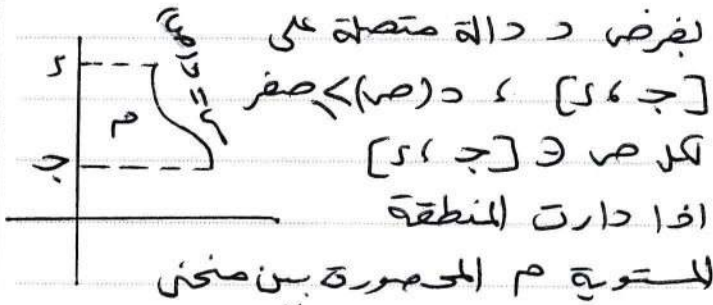 بفرض د دالة متصلة على
[جـ ، د] ، د(ص) ≥ صفر
لكل ص ∈ [جـ ، د]
اذا دارت المنطقة
المستوية م المحصورة بين منحنى
د
م
جـ